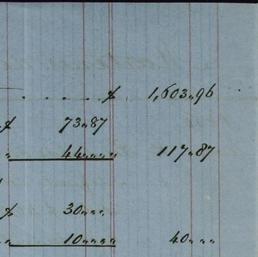 . . . . $ 1,603„96
$ 73„87
„ 44„„„ 117„87
$ 30„„„
„ 10„„„ 40„„„